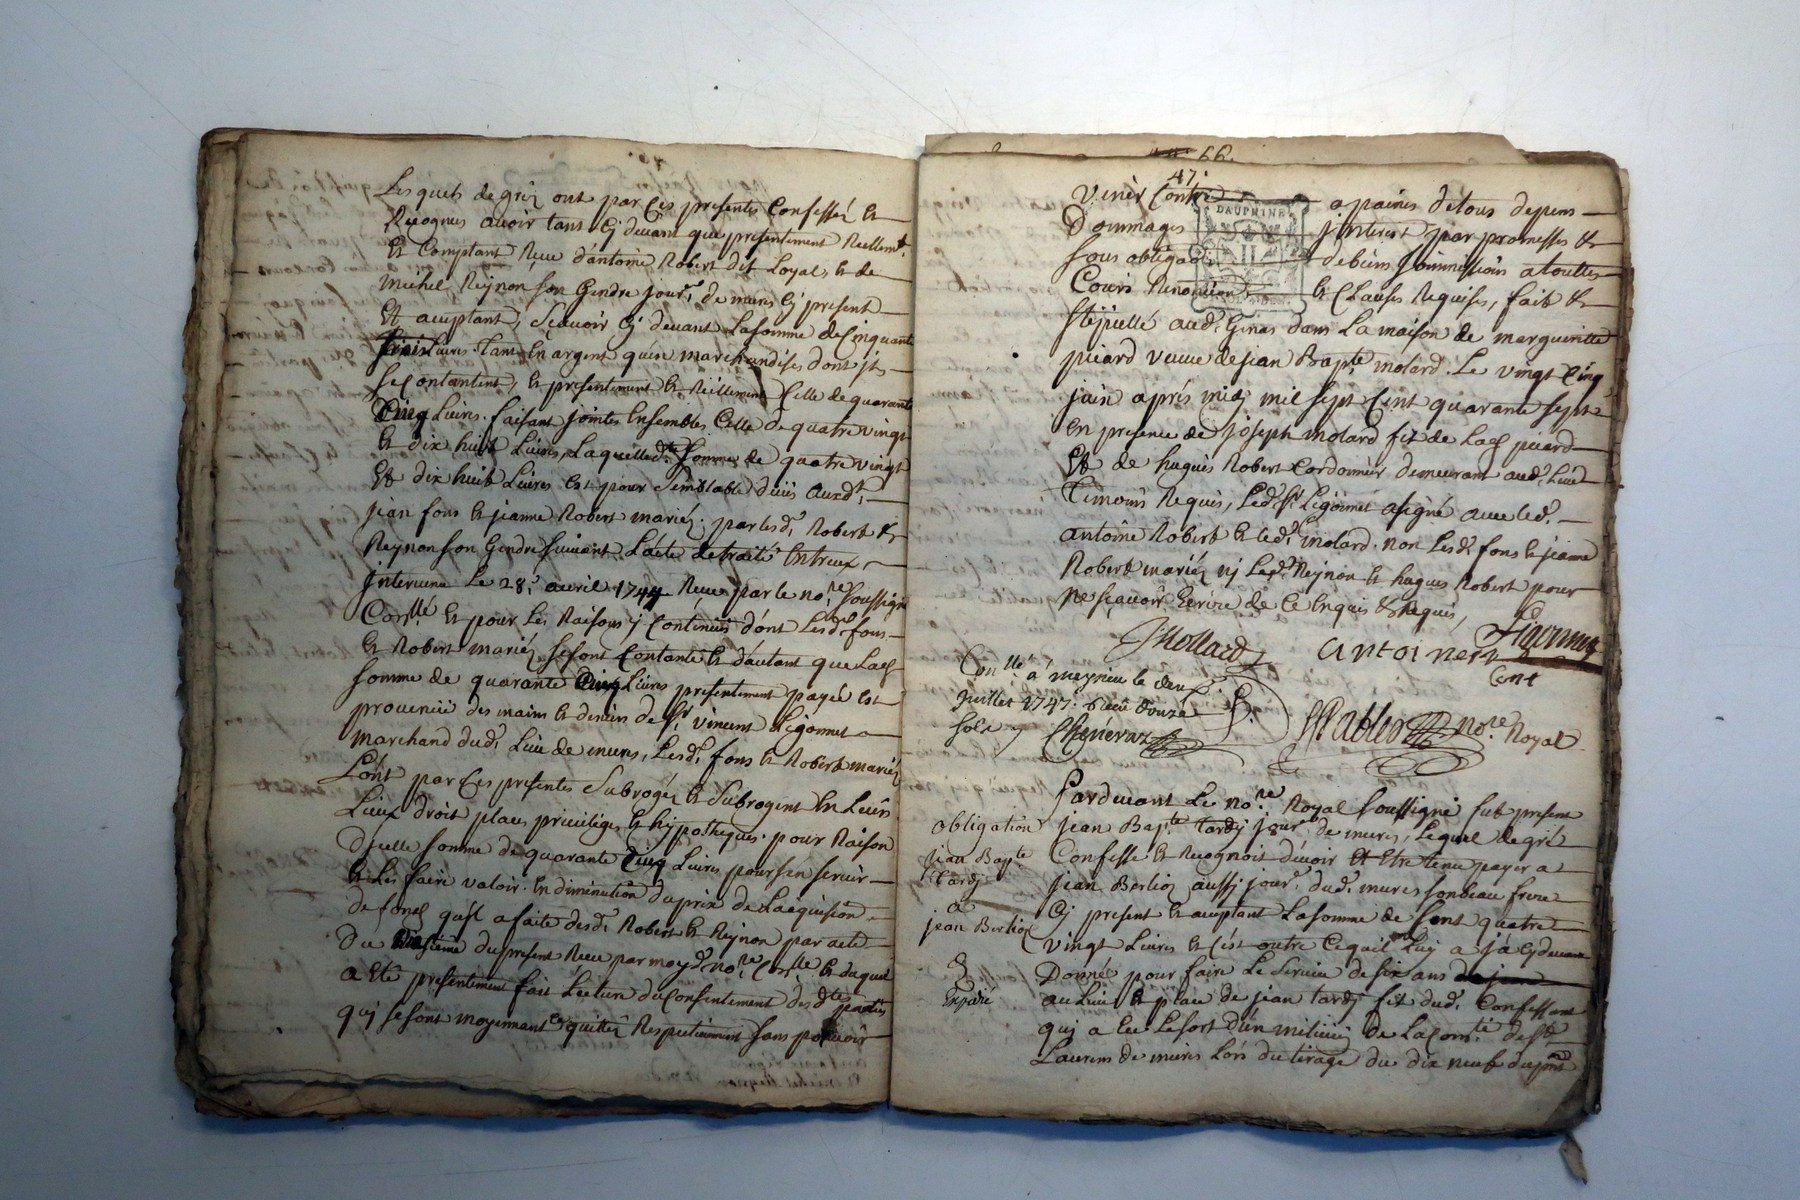 Lesquels de gréz ont par Ces presentes Confessez et
Recognus avoir tant Cy devant que presentement Reellemt.
et Comptant Reçue d'antoine Robert dit Loyal, et de
michel Reynon son Gendre jour.r de mures Cy present
Et acceptant, Sçavoir Cy devant La somme de Cinquante
trois Livres. tant En argent qu'en marchandises dont jls
se Contantent, et presentement et Réellement Celle de quarante
Cinq Livres. faisant jointes Ensembles Celle de quatre vingt
et dix huit Livres, Laquelle d.te Somme de quatre vingt
Et dix huit Livres est pour Semblable düe auxd.ts
jean fons et jeanne Robert mariéz. par lesd.s Robert &
Reynon son Gendre suivant L'acte de traité Entreux
Intervenu Le 28.e avril 1744 Receu par le no.re soussigné
Con.llé Et pour Les Raisons y Contenües dont Lesd.s fons
et Robert mariéz se sont Contanté et d'autant que Lad.
somme de quarante Cinq Livres presentement payée est
provenüe des mains et deniers de s.r vincent Ligonnet
marchand dud. Lieu de mures, Lesd.s fons et Robert mariéz
L'ont par Ces presentes Subrogéz et Subrogent En Leurs
Lieux droit place privileges et hypotheques. pour Raison
d'icelle somme de quarante Cinq Livres pour s'en servir
et Les faire valoir. En diminution du prix de L'acquisition
de fond qu'il a faite desd.s Robert et Reynon par acte
du du present Receu par moyd. no.re Con.llé et duquel
a Eté presentement fait Lecture du Consentement desd.tes parties
quj se sont moyennant ce quittéz Respectivement sans pouvoir
66.
47.
venir Contre a peines de tous depens
DAUPHINE
Dommages jnterest par promesses &
sous obliga.on de biens soumissions a touttes
Cours Renonciaon. et Clauses Requises, fait &
stipullé aud. Ginas dans La maison de margueritte
picard veuve de jean Bapt.te molard. Le vingt Cinq
juin aprés midy mil sept Cent quarante sept
En presence de joseph molard fiz de Lad. picard
Et de hugues Robert Cordonnier demeurant aud. Lieu
Temoins Requis, Led. s.r Ligonnet a signé avec led.
antoine Robert et led. molard. non Lesd. fons et jeanne
Robert mariéz nj Led. Reynon et hugues Robert pour
ne sçavoir Ecrire de Ce Enquis & Requis,
JMollard antoine rt Ligonnet
Cont
Con.llé á meyrieu le deux
juillet 1747. Receu douze
sols Cheneraz
Pathed no.re Royal
Pardevant Le no.re Royal soussigné fut present
jean Bap.te tardy jour.r de mures, Lequel de gré
Confesse et Recognoit devoir Et Etre tenu payer a
jean Berlioz aussy jour.r dud. mures son beau frere
Cy present et acceptant La somme de Cent quatre
vingt Livres et C'est outre Ce quil Luy a ja Cy devant
Donné pour faire Le Service de six ans
au Lieu et place de jean tardy fiz dud. Confessant
quj a Eu Le sort d'un milicien de La Com.té de s.t
Laurens de mures Lors du tirage du dix neuf du pnt
obligaôn
jean Bap.te
tardj
a
jean Berlioz
&
Expédié